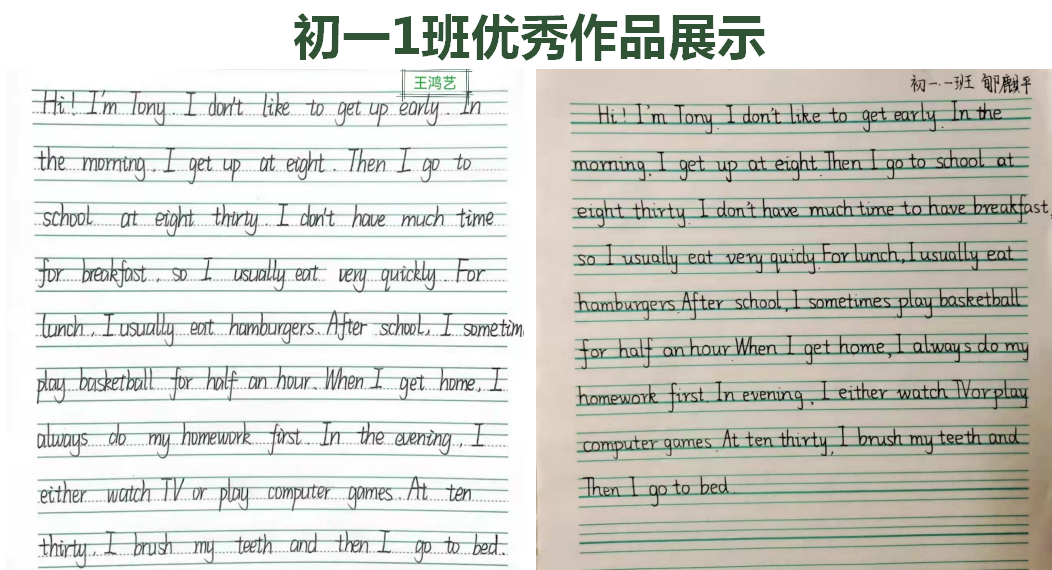 初一1班优秀作品展示
王鸿艺
Hi! I'm Tony. I don't like to get up early. In
the morning, I get up at eight. Then I go to
school at eight thirty. I don't have much time
for breakfast, so I usually eat very quickly. For
lunch, I usually eat hamburgers. After school, I sometim
play basketball for half an hour. When I get home, I
always do my homework first. In the evening, I
either watch TV or play computer games. At ten
thirty, I brush my teeth and then I go to bed.
初一.一班 郇麒平
Hi! I'm Tony. I don't like to get early. In the
morning, I get up at eight. Then I go to school at
eight thirty. I don't have much time to have breakfast,
so I usually eat very quicly. For lunch, I usually eat
hamburgers. After school, I sometimes play basketball
for half an hour. When I get home, I always do my
homework first. In evening, I either watch TV or play
computer games. At ten thirty, I brush my teeth and
Then I go to bed.